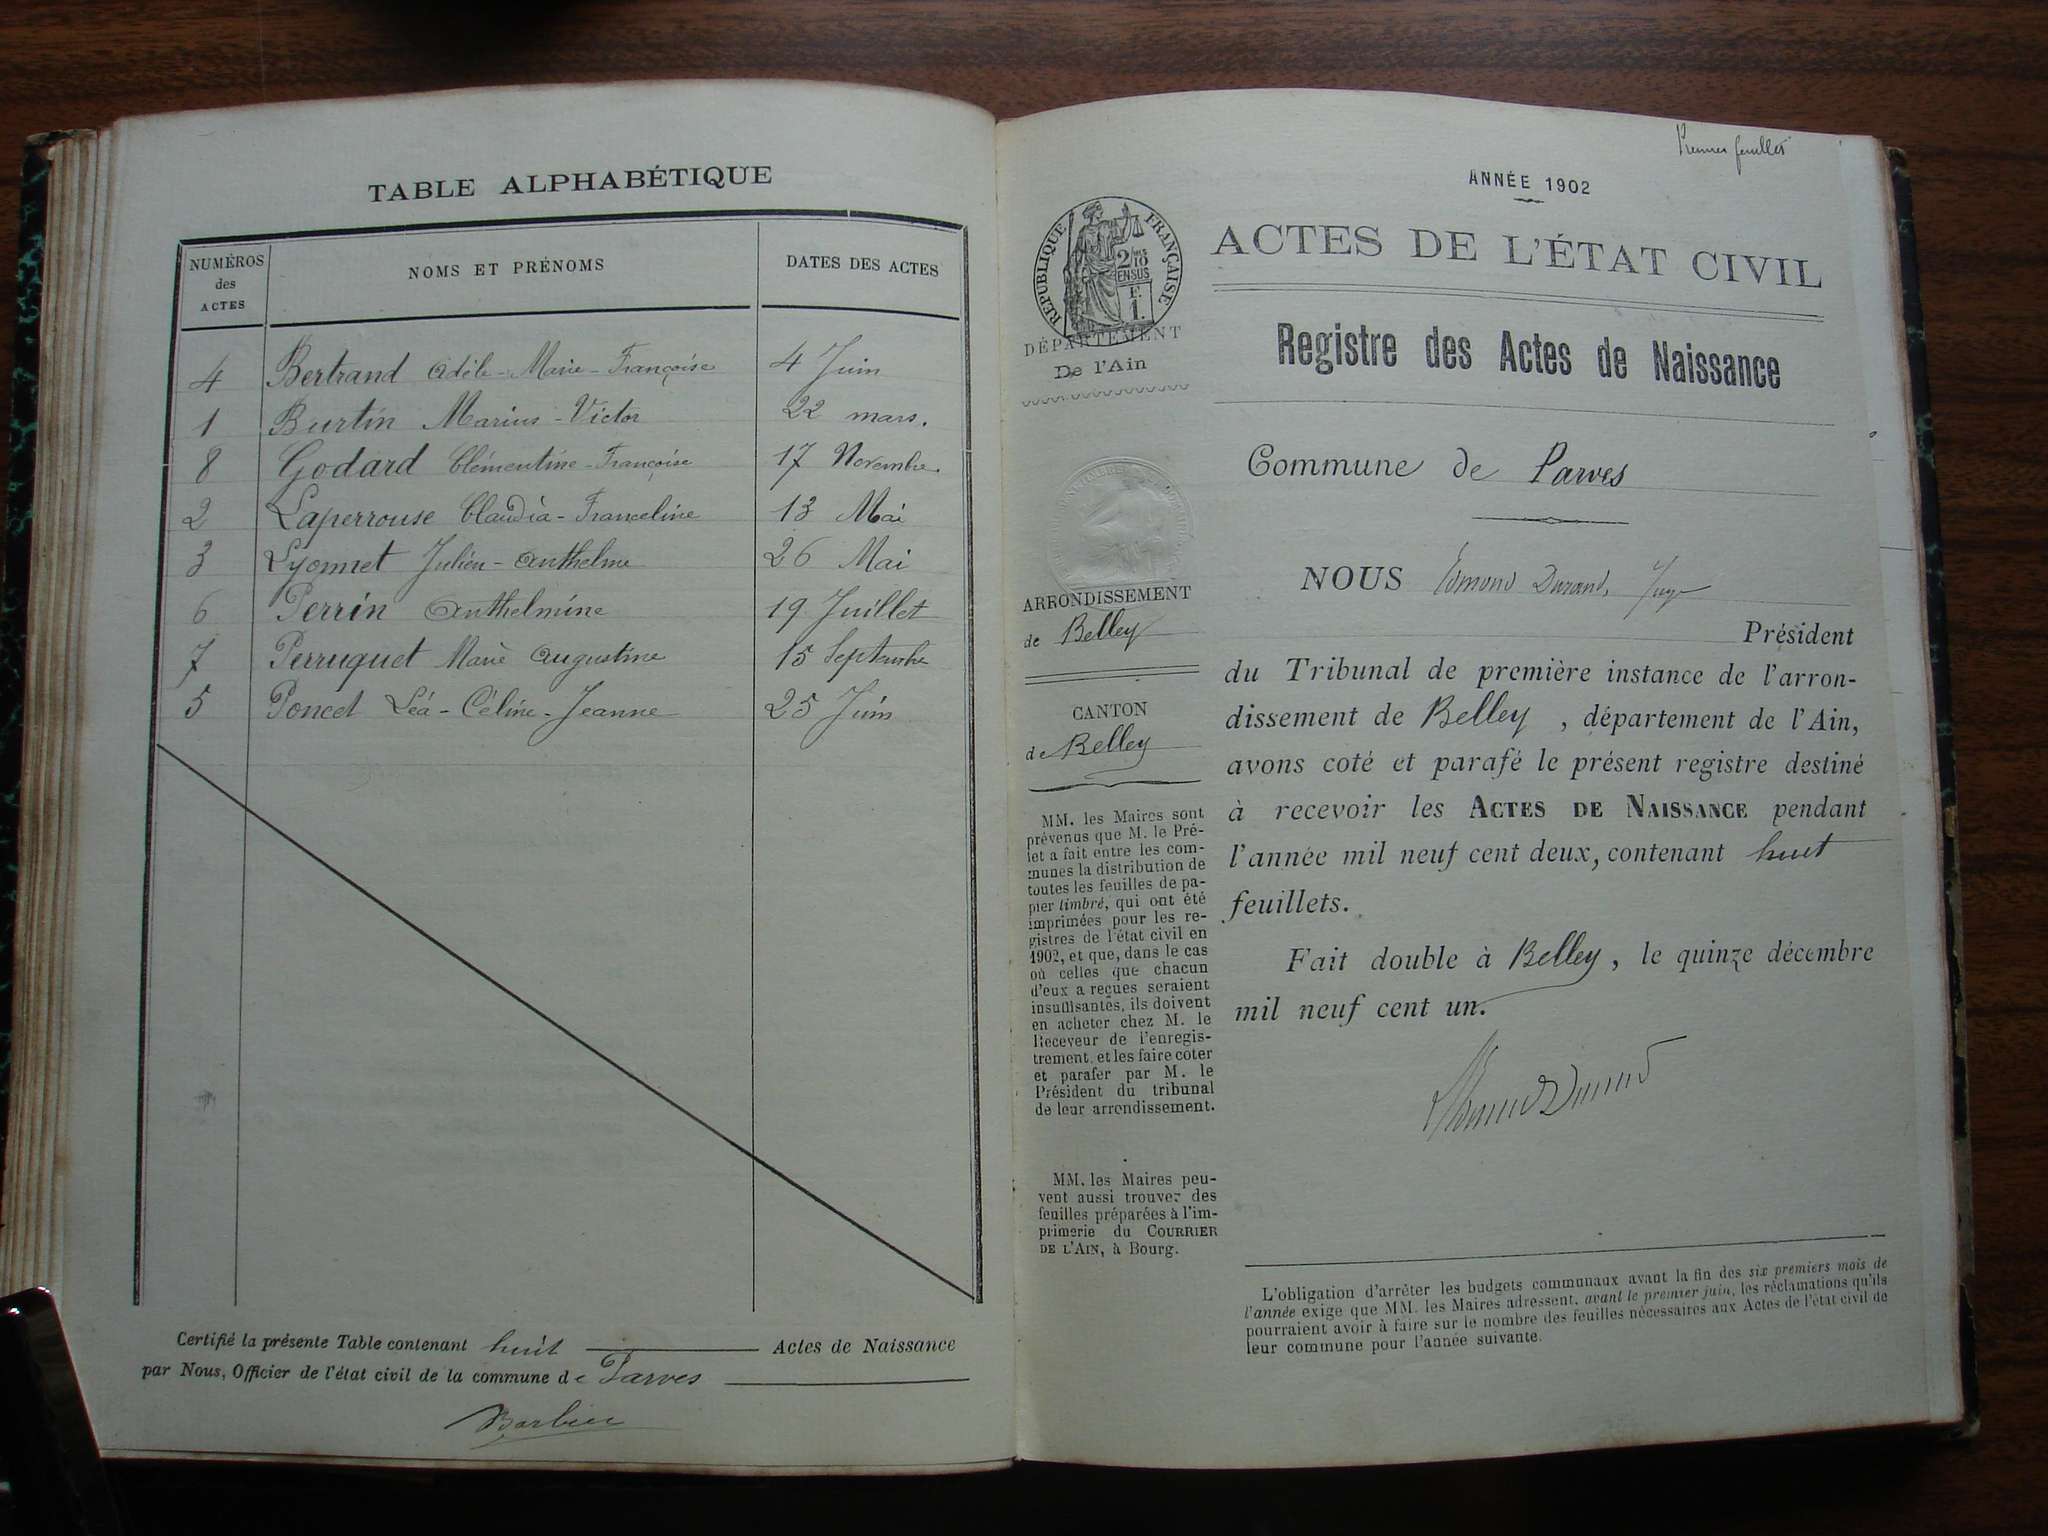 TABLE ALPHABÉTIQUE
NUMÉROS des ACTES
NOMS ET PRÉNOMS
DATES DES ACTES
4 Bertrand Adèle-Marie-Françoise 4 Juin
1 Burtin Marius-Victor 22 mars.
8 Godard Clémentine-Françoise 17 Novembre
2 Laperrouse Claudia-Franceline 13 Mai
3 Lyonnet Julien-Anthelme 26 Mai
6 Perrin Anthelmine 19 Juillet
7 Perruquet Marie Augustine 15 Septembre
5 Poncet Léa-Céline-Jeanne 25 Juin
Certifié la présente Table contenant huit Actes de Naissance
par Nous, Officier de l'état civil de la commune de Parves
Barbier
ANNÉE 1902
ACTES DE L'ÉTAT CIVIL
RÉPUBLIQUE FRANÇAISE
2/10 EN SUS
F. 1.
DÉPARTEMENT
De l'Ain
Registre des Actes de Naissance
Commune de Parves
ARRONDISSEMENT
de Belley
CANTON
de Belley
MM. les Maires sont
prévenus que M. le Pré-
fet a fait entre les com-
munes la distribution de
toutes les feuilles de pa-
pier timbré, qui ont été
imprimées pour les re-
gistres de l'état civil en
1902, et que, dans le cas
où celles que chacun
d'eux a reçues seraient
insuffisantes, ils doivent
en acheter chez M. le
Receveur de l'enregis-
trement, et les faire coter
et parafer par M. le
Président du tribunal
de leur arrondissement.
MM. les Maires peu-
vent aussi trouver des
feuilles préparées à l'im-
primerie du COURRIER
DE L'AIN, à Bourg.
NOUS Edmond Durand, Juge
Président
du Tribunal de première instance de l'arron-
dissement de Belley, département de l'Ain,
avons coté et parafé le présent registre destiné
à recevoir les ACTES DE NAISSANCE pendant
l'année mil neuf cent deux, contenant huit
feuillets.
Fait double à Belley, le quinze décembre
mil neuf cent un.
Edmond Durand
L'obligation d'arrêter les budgets communaux avant la fin des six premiers mois de
l'année exige que MM. les Maires adressent, avant le premier juin, les réclamations qu'ils
pourraient avoir à faire sur le nombre des feuilles nécessaires aux Actes de l'état civil de
leur commune pour l'année suivante.